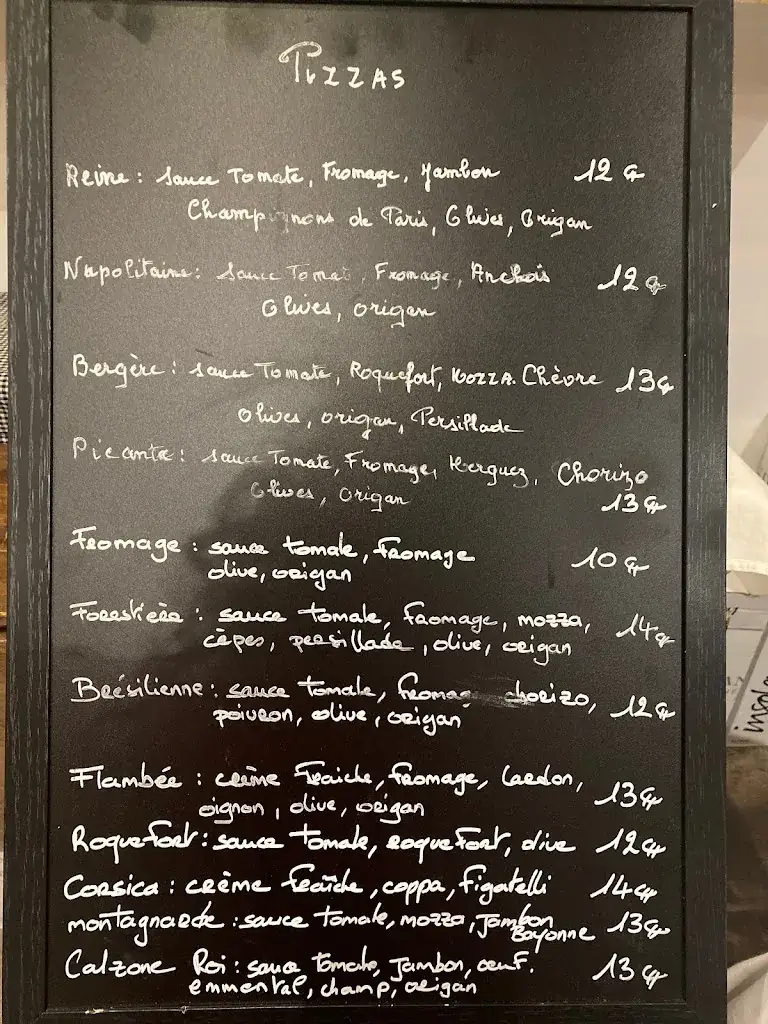 PIZZAS
Reine : sauce Tomate, Fromage, Jambon 12 €
Champignons de Paris, Olives, Origan
Napolitaine : sauce Tomat , Fromage, Anchois 12 €
Olives, origan
Bergère : sauce Tomate, Roquefort, MOZZA. Chèvre 13 €
olives, origan, Persillade
Picante : sauce Tomate, Fromage, Merguez, Chorizo
Olives, origan 13 €
Fromage : sauce tomate, fromage 10 €
olive, origan
Forestière : sauce tomate, fromage, mozza, 14 €
cèpes, persillade, olive, origan
Brésilienne : sauce tomate, fromag chorizo, 12 €
poivron, olive, origan
Flambée : crème fraiche, fromage, Lardon, 13 €
oignon, olive, origan
Roquefort : sauce tomate, roquefort, olive 12 €
Corsica : crème fraîche, coppa, figatelli 14 €
montagnarde : sauce tomate, mozza, Jambon 13 €
Bayonne
Calzone Roi : sauce tomate, Jambon, œuf. 13 €
emmental, champ, origan